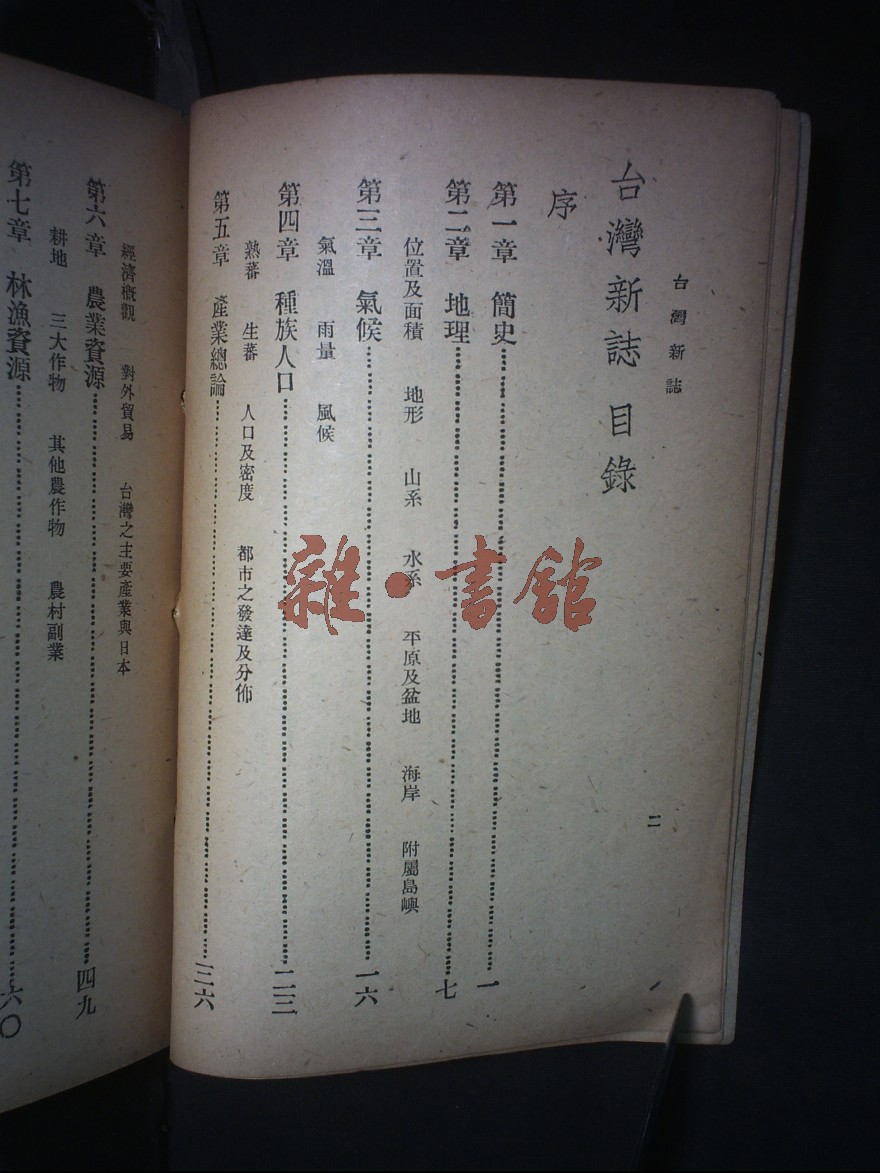 台灣新誌
二
台灣新誌 目錄
序
第一章 簡史…………一
第二章 地理…………七
位置及面積 地形 山系 水系 平原及盆地 海岸 附屬島嶼
第三章 氣候…………一六
氣溫 雨量 風候
第四章 種族人口…………二三
熟蕃 生蕃 人口及密度 都市之發達及分佈
第五章 產業總論…………三六
經濟概觀 對外貿易 台灣之主要產業與日本
第六章 農業資源…………四九
耕地 三大作物 其他農作物 農村副業
第七章 林漁資源…………六〇
雜·書館